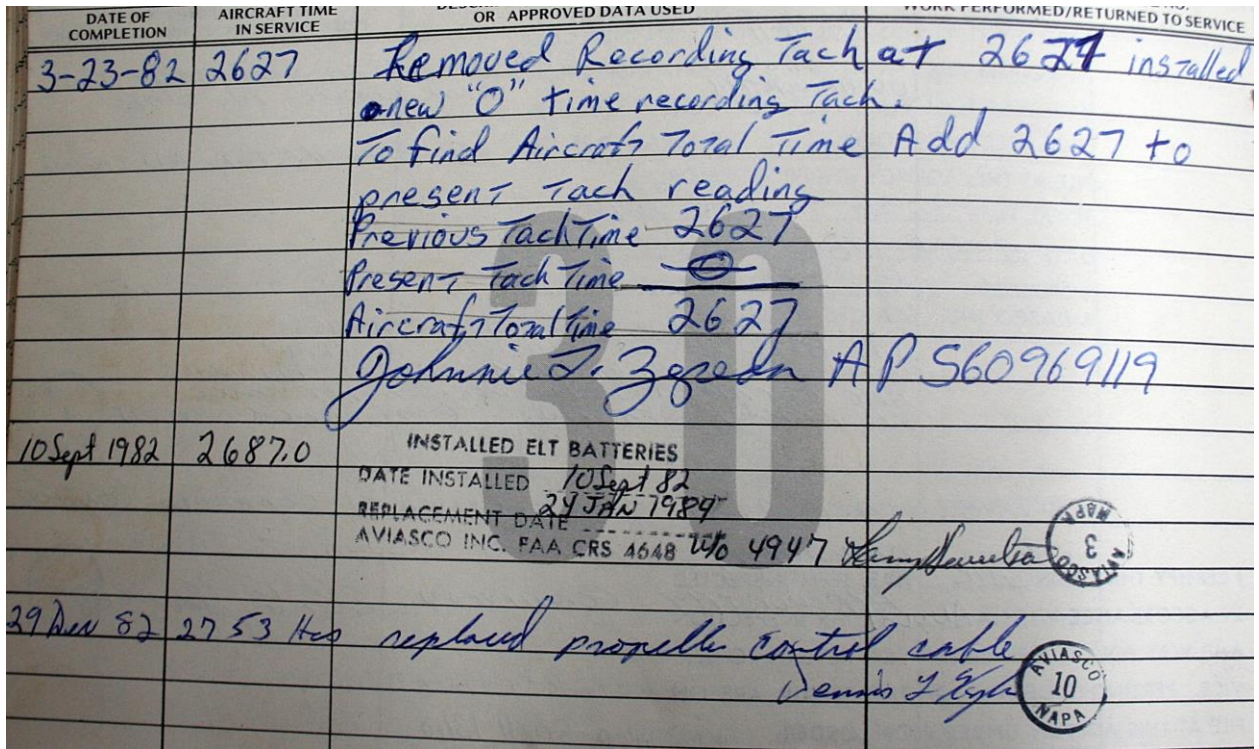 DATE OF COMPLETION
AIRCRAFT TIME IN SERVICE
OR APPROVED DATA USED
WORK PERFORMED/RETURNED TO SERVICE
3-23-82 2627 Removed Recording Tach at 2627 installed
new "0" time recording Tach.
To find Aircraft Total Time Add 2627 to
present Tach reading
Previous Tach Time 2627
Present Tach Time 0
Aircraft Total Time 2627
Johnnie AP 560969119
30
10 Sept 1982 2687.0 INSTALLED ELT BATTERIES
DATE INSTALLED 10 Sept 82
REPLACEMENT DATE 24 JAN 1984
AVIASCO INC. FAA CRS 4648 W/o 4947
AVIASCO 3 NAPA
29 Dec 82 2753 Hrs replaced propeller control cable
Dennis L
AVIASCO 10 NAPA